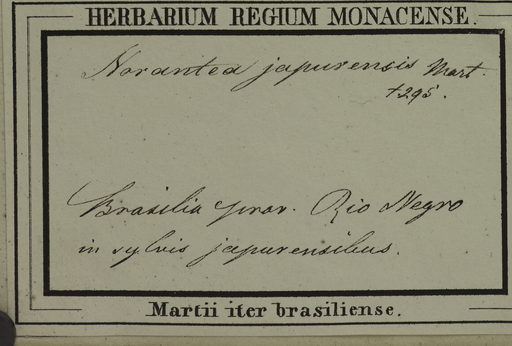 HERBARIUM REGIUM MONACENSE.
Norantea japurensis Mart.
†295.
Brasilia prov. Rio Negro
in sylvis japurensibus.
Martii iter brasiliense.